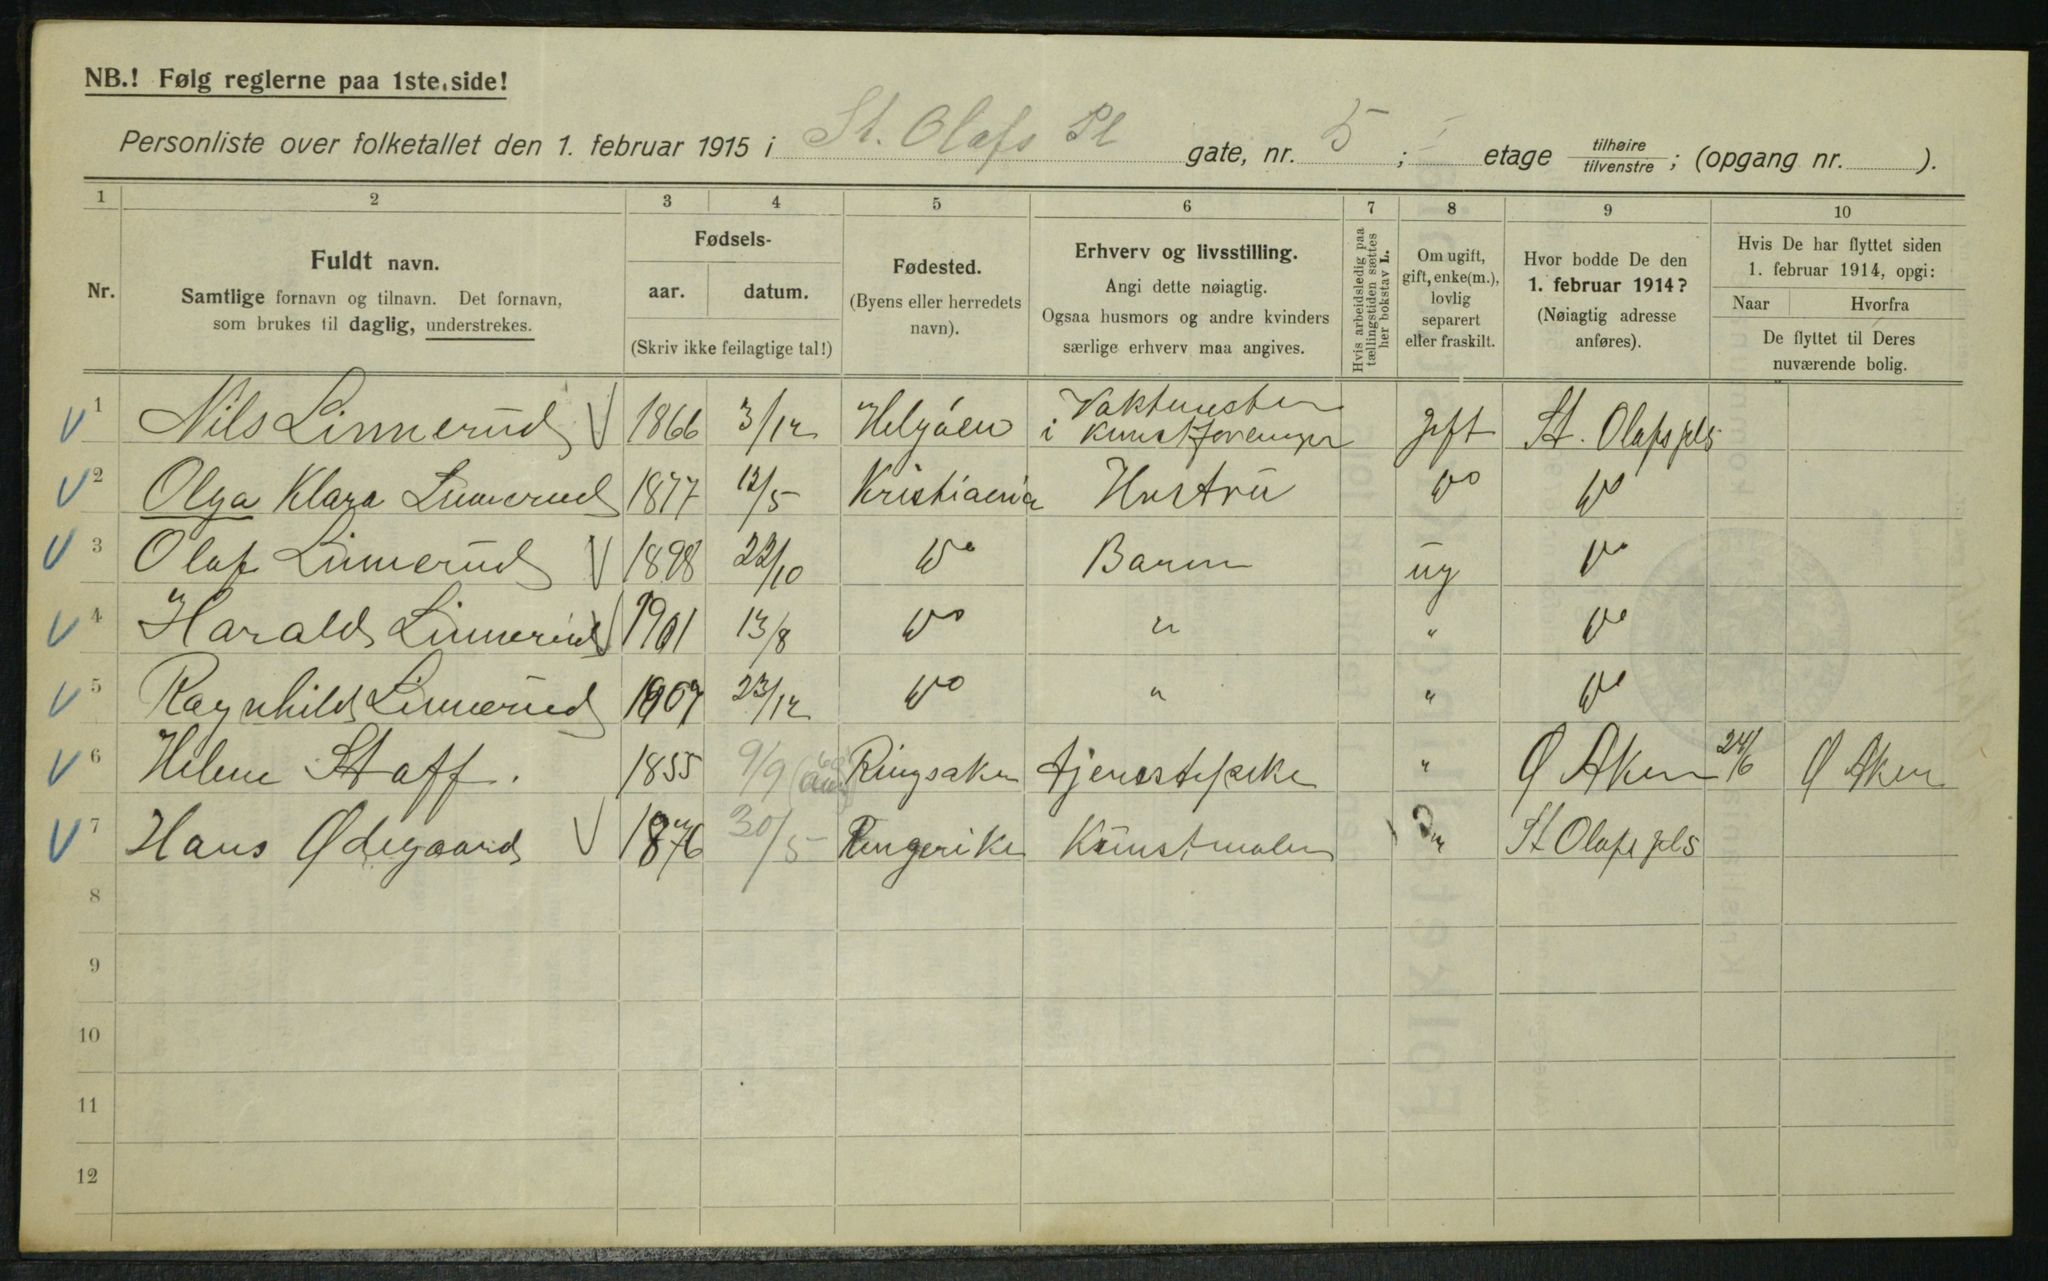 NB.! Følg reglerne paa 1ste side!
Personliste over folketallet den 1. februar 1915 i St. Olafs Pl gate, nr. 5 ; I etage tilhøire tilvenstre ; (opgang nr. ).
1 2 3 4 5 6 7 8 9 10
Nr.
Fuldt navn.
Samtlige fornavn og tilnavn. Det fornavn,
som brukes til daglig, understrekes.
Fødsels-
aar. datum.
(Skriv ikke feilagtige tal!)
Fødested.
(Byens eller herredets
navn).
Erhverv og livsstilling.
Angi dette nøiagtig.
Ogsaa husmors og andre kvinders
særlige erhverv maa angives.
Hvis arbeidsledig paa
tællingstiden sættes
her bokstav L.
Om ugift,
gift, enke(m.),
lovlig
separert
eller fraskilt.
Hvor bodde De den
1. februar 1914?
(Nøiagtig adresse
anføres).
Hvis De har flyttet siden
1. februar 1914, opgi:
Naar Hvorfra
De flyttet til Deres
nuværende bolig.
1 Nils Linnerud 1866 3/12 Helgøen Vaktmester i Kunstforeningen gift St. Olafs pls
2 Olga Klara Linnerud 1877 12/5 Kristiania Hustru Do Do
3 Olaf Linnerud 1898 22/10 Do Barn ug Do
4 Harald Linnerud 1901 13/8 Do " " Do
5 Ragnhild Linnerud 1907 23/12 Do " " Do
6 Helene Staff. 1855 9/9 Ringsaker tjenestepike " Ø Aker 24/6 Ø Aker
7 Hans Ødegaard 1876 30/5 Ringerike Kunstmaler " St Olafs pls
8
9
10
11
12